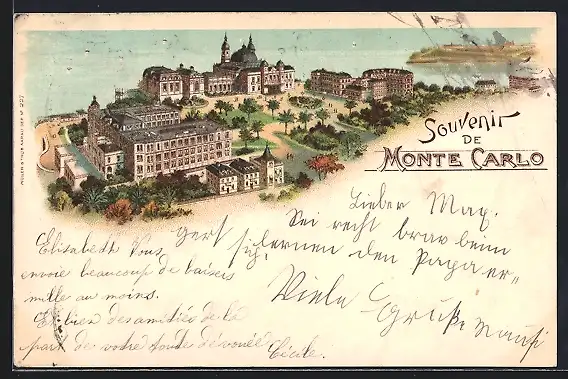 Souvenir
DE
MONTE CARLO
Lieber Max.
Sei recht brav beim
lernen den Papa er"
Viele Grüße Mausi
Elisabeth Vous
envoie beaucoup de baisers
mille au moins.
Et bien des amitiés de la
part de votre toute dévouée
Cécile.